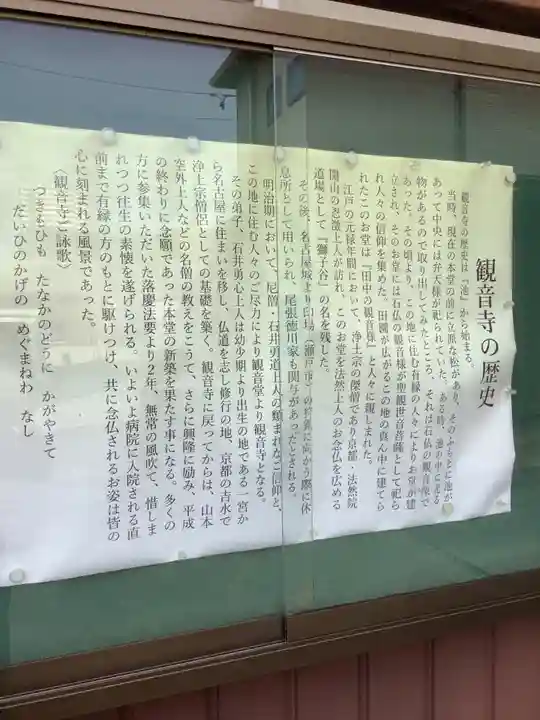 観音寺の歴史
観音寺の歴史は『池』から始まる。
当時、現在の本堂の前に立派な松があり、そのふもとに池が
あって中央には弁天様が祀られていた。ある時、池の中に光る
物があるので取り出してみたところ、それは石仏の観音像で
あった。その頃より、この地に住む有縁の人々によりお堂が建
立され、そのお堂には石仏の観音様が聖観世音菩薩として祀ら
れ人々の信仰を集めた。田園が広がるこの地の真ん中に建てら
れたこのお堂は『田中の観音様』と人々に親しまれた。
江戸の元禄年間において、浄土宗の傑僧であり京都・法然院
開山の忍澂上人が訪れ、このお堂を法然上人のお念仏を広める
道場として『獅子谷』の名を残した。
その後、名古屋城より印場（瀬戸市）の狩猟に向かう際に休
息所として用いられ、尾張徳川家も関与があったとされる。
明治期において、尼僧・石井勇道上人の類まれなご信仰と、
この地に住む人々のご尽力により観音堂より観音寺となる。
その弟子、石井勇心上人は幼少期より出生の地である一宮か
ら名古屋に住まいを移し、仏道を志し修行の地、京都の吉水で
浄土宗僧侶としての基礎を築く。観音寺に戻ってからは、山本
空外上人などの名僧の教えをこうて、さらに興隆に励み、平成
の終わりに念願であった本堂の新築を果たす事になる。多くの
方に参集いただいた落慶法要より２年、無常の風吹て、惜しま
れつつ往生の素懐を遂げられる。いよいよ病院に入院される直
前まで有縁の方のもとに駆けつけ、共に念仏されるお姿は皆の
心に刻まれる風景であった。
〈観音寺ご詠歌〉
つきもひも　たなかのどうに　かがやきて
だいひのかげの　めぐまねわ　なし